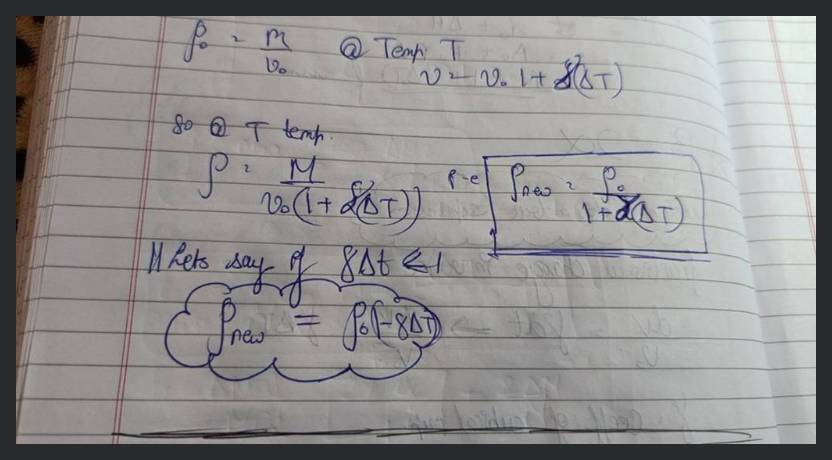 ρ₀ = M/V₀ @ Temp. T
V = V₀ 1+ γ(ΔT)
so @ T temp.
ρ = M/V₀(1+γ(ΔT)) i.e ρnew = ρ₀/1+γ(ΔT)
Lets say if γΔt ≤ 1
ρnew = ρ₀(1-γΔT)